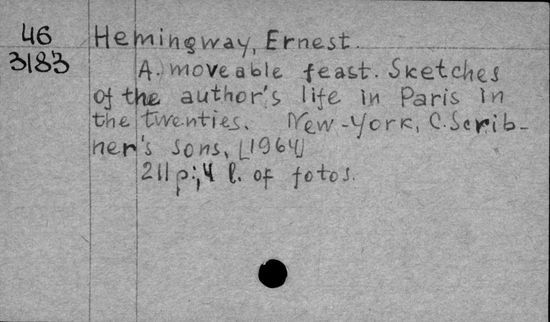 46 Hemingway, Ernest.
3183
A. moveable feast. Sketches
of the author's life in Paris in
the twenties. New-York, C. Scrib-
ner's sons, [1964]
211 p.; 4 l. of fotos.